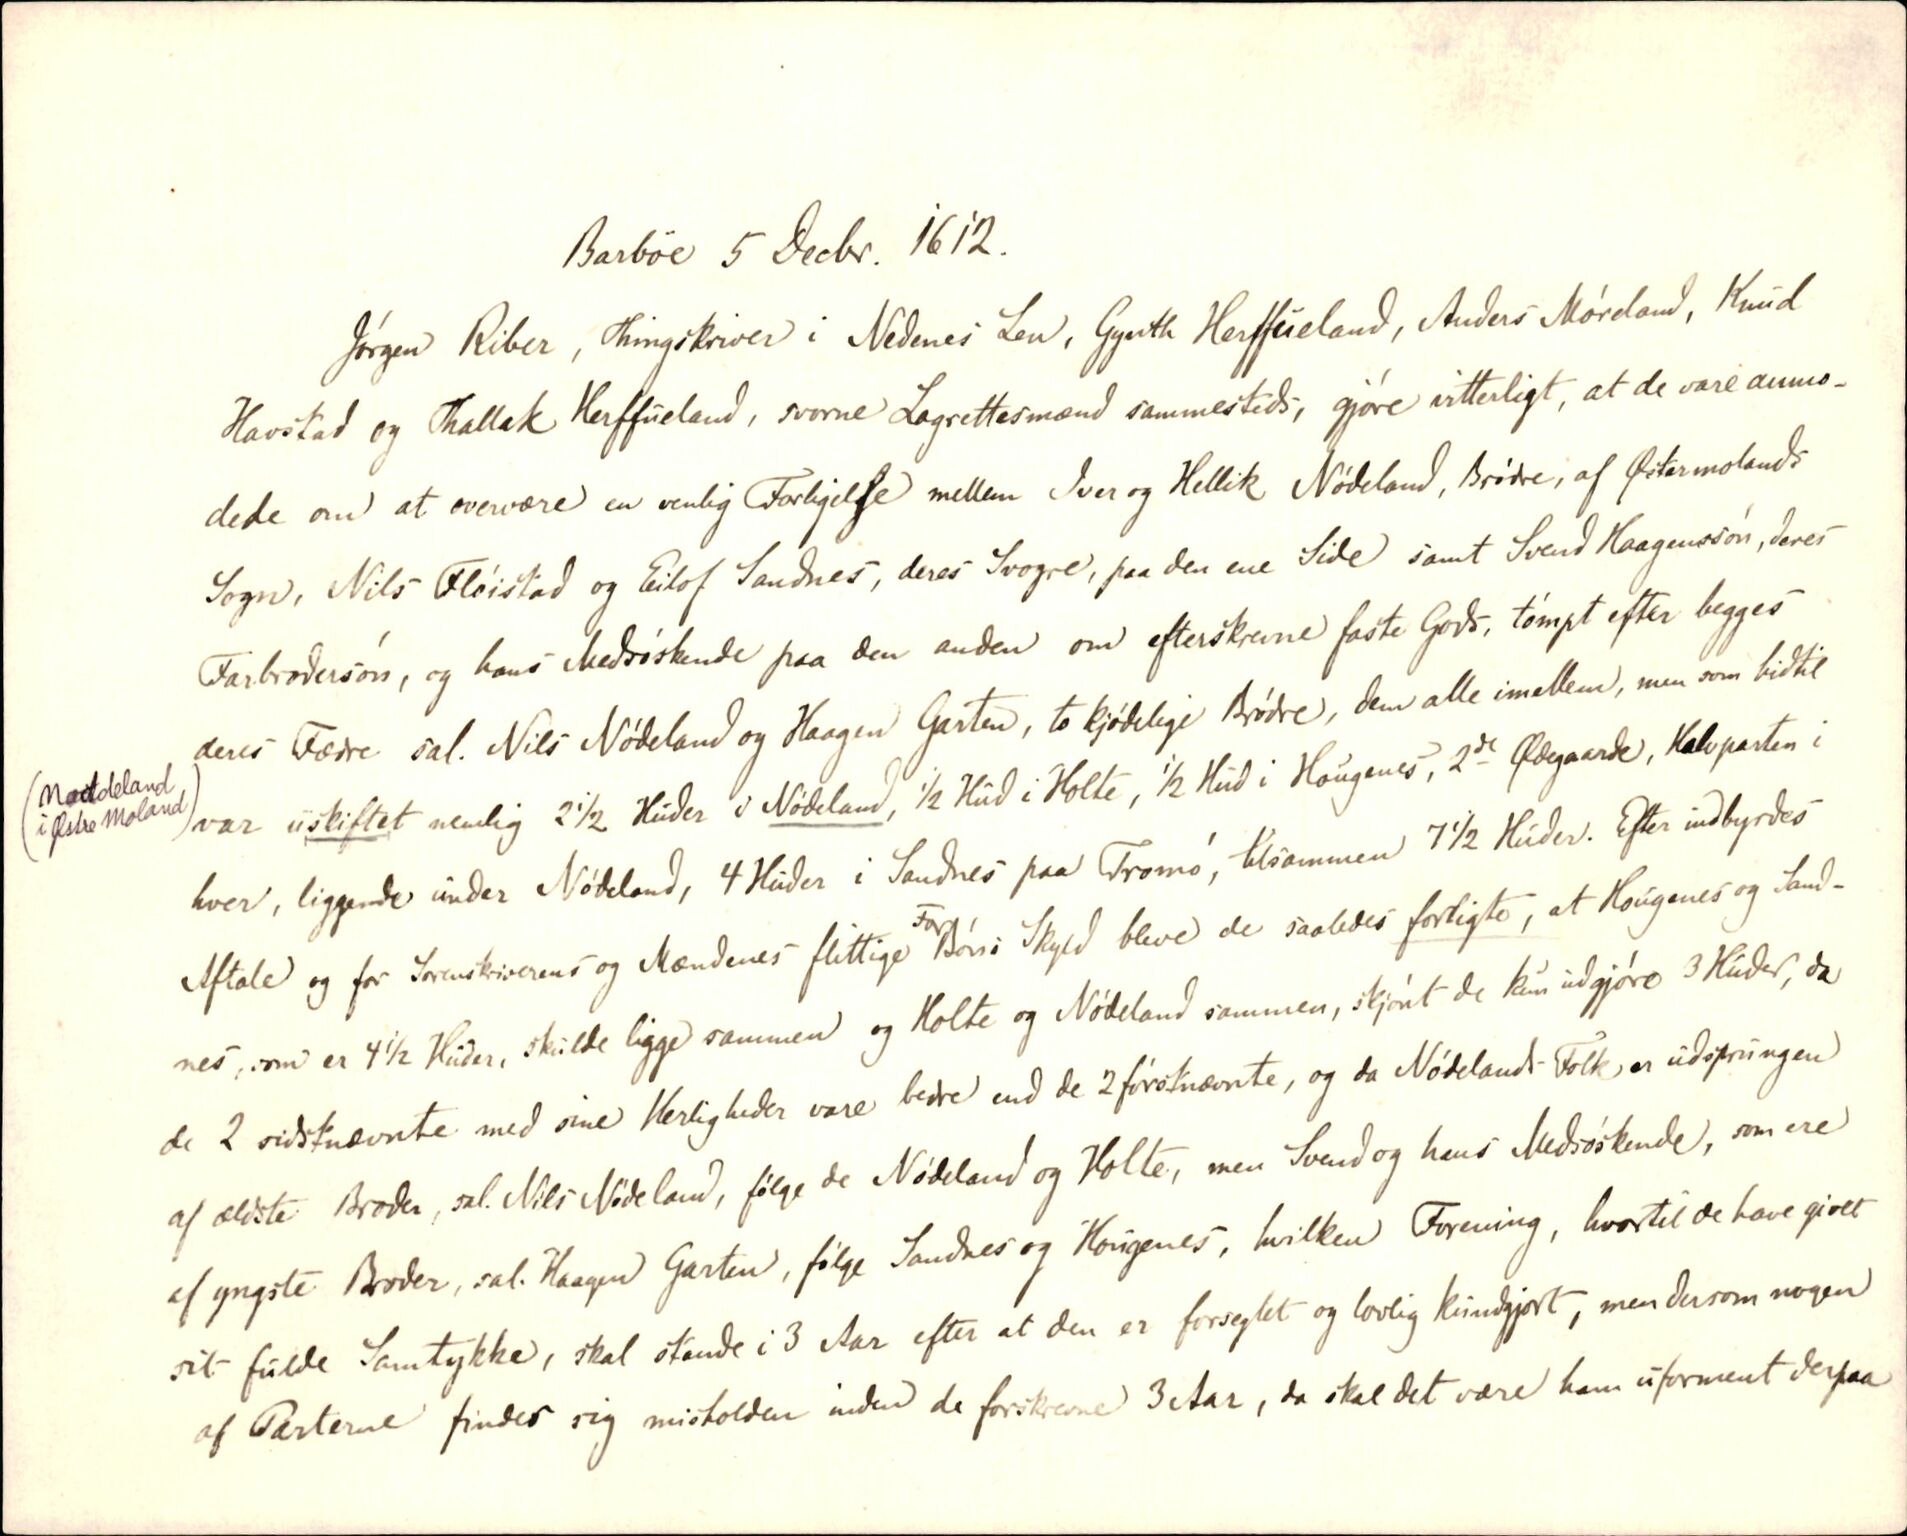 Barböe 5 Decbr. 1612.
Jörgen Riber, Thingskriver i Nedenes Len, Gynth Herffueland, Anders Möreland, Knud
Havstad og Thallak Herffueland, svorne Lagrettesmænd sammesteds, gjöre vitterligt, at de vare anmo-
dede om at overvære en venlig Forligelse mellem Iver og Hellik Nödeland, Brödre, af Østermolands
Sogn, Nils Flöistad og Eilof Sandnes, deres Svogre, paa den ene Side samt Svend Haagenssön, deres
Farbrodersön, og hans Medsöskende paa den anden om efterskrevne faste Gods, tömpt efter begges
deres Fædre sal. Nils Nödeland og Haagen Garten, to kjödelige Brödre, dem alle imellem, men som hidtil
(Naddeland
i Østre Moland)
var uskiftet nemlig 2 1/2 Huder i Nödeland, 1/2 Hud i Holte, 1/2 Hud i Hougenes, 2de Ødegaarde, Halvparten i
hver, liggende under Nödeland, 4 Huder i Sandnes paa Tromö, tilsammen 7 1/2 Huder. Efter indbyrdes
Aftale og for Sorenskriverens og Mændenes flittige ForBöns Skyld bleve de saaledes forligte, at Hougenes og Sand-
nes, som er 4 1/2 Huder, skulde ligge sammen og Holte og Nödeland sammen, skjönt de kun udgjöre 3 Huder, da
de 2 sidstnævnte med sine Herligheder vare bedre end de 2 förstnævnte, og da Nödelands Folk er udsprungen
af ældste Broder, sal. Nils Nödeland, fölge de Nödeland og Holte, men Svend og hans Medsöskende, som ere
af yngste Broder, sal. Haagen Garten, fölge Sandnes og Hougenes, hvilken Forening, hvortil de have givet
sit fulde Samtykke, skal stande i 3 Aar efter at den er forseglet og lovlig kundgjort, men dersom nogen
af Parterne findes sig misholden inden de forskrevne 3 Aar, da skal det være ham uforment derpaa